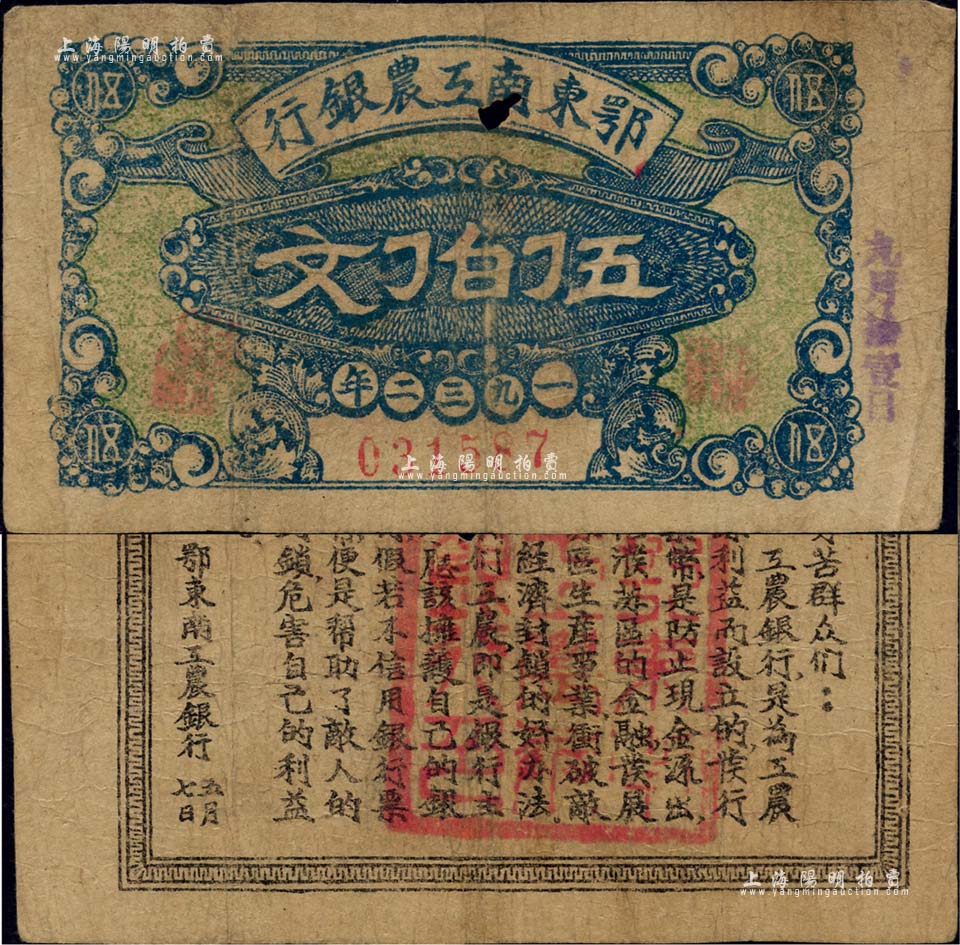 上海陽明拍賣
www.yangmingauction.com
鄂東南工農銀行
伍
伍
伍佰文
一九三二年
伍
伍
031587
上海陽明拍賣
www.yangmingauction.com
九月壹日
苦群众们：
工農銀行，是為工農
利益而設立的，發行
幣，是防止現金流出，
苏區的金融，發展
區生產事業，衝破敵
經濟封鎖的好办法。
们工農，即是銀行主
應該擁護自己的銀
假若不信用銀行票
便是帮助了敵人的
鎖，危害自己的利益
鄂東南工農銀行
五月
七日
上海陽明拍賣
www.yangmingauction.com